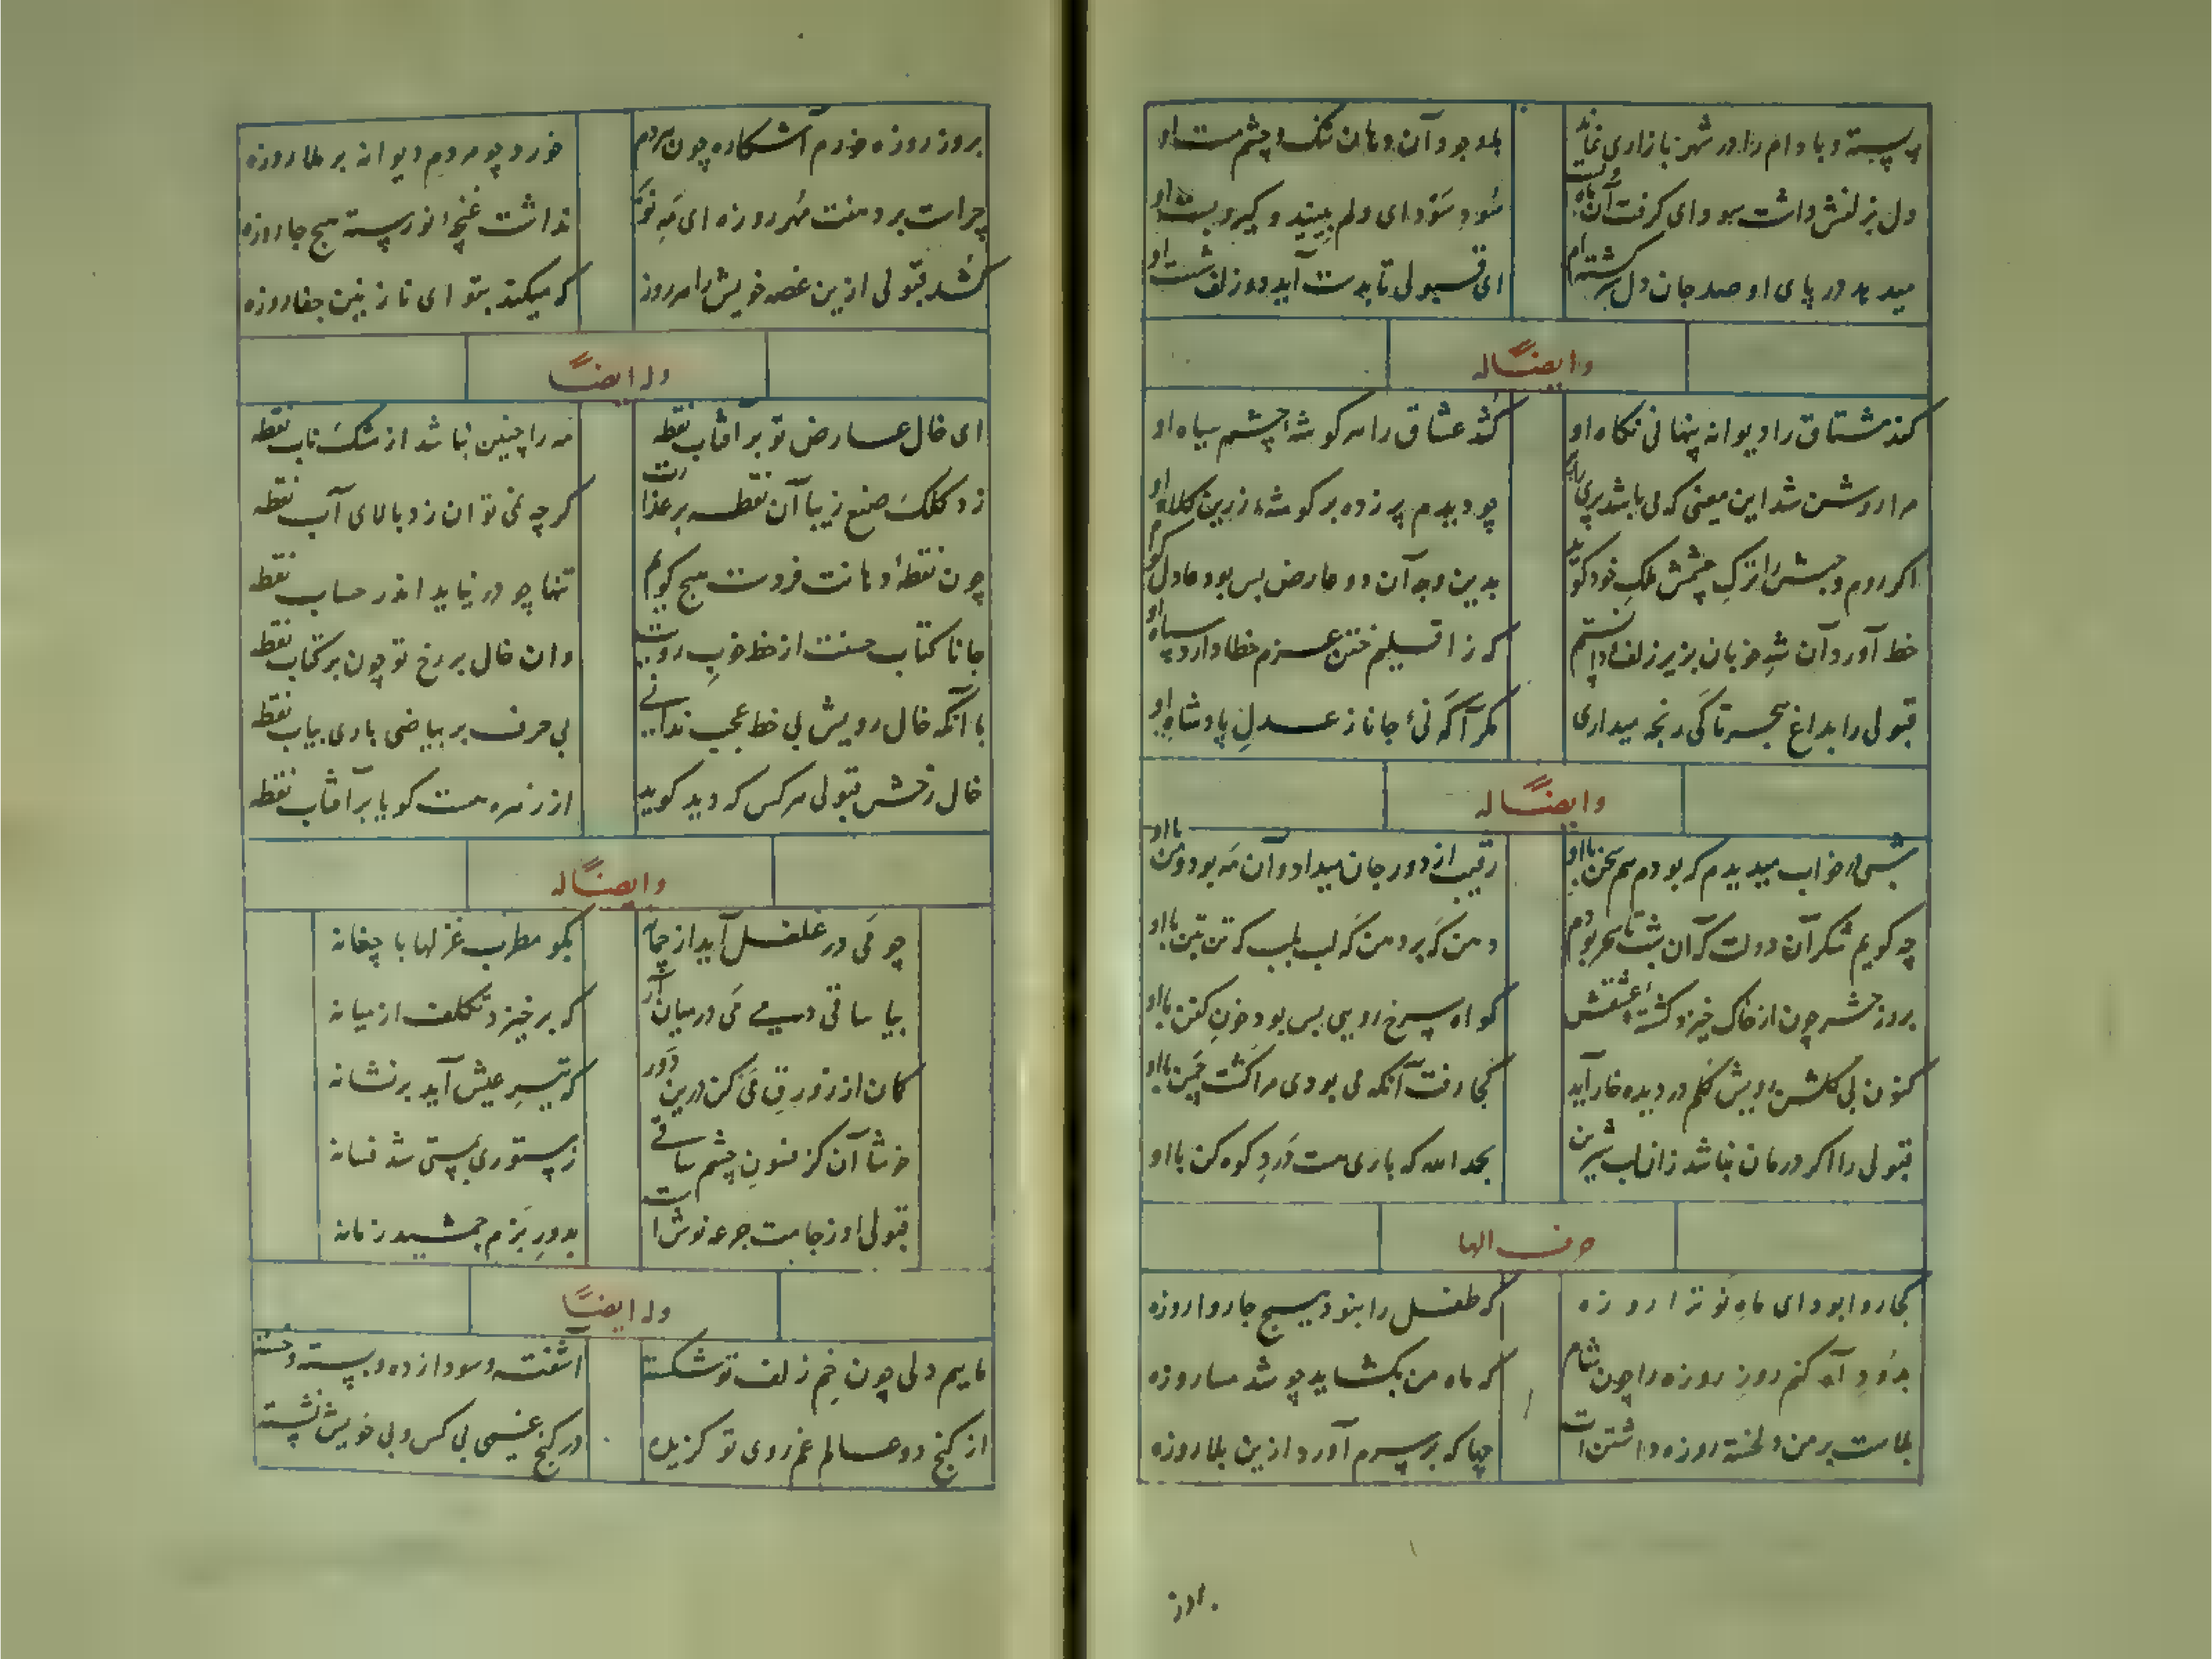 پسته و بادام را در شهر بازاری نماند
با وجود آن دهان تنک و چشم مست او
دل بزلفش داشت سودای کرفت آن ماه دست
سود و سودای دلم بینید و کیر و بست او
میدهد در پای او صد جان دل سرکشته ام
ای قبولی تا بدست آید دو زلف شست او
وایضا له
کند مشتاق را دیوانه پنهانی نکاه او
کشد عشاق را هر کوشهٔ چشم سیاه او
مرا روشن شد این معنی که بی باشد پری
چو دیدم پر زده بر کوشهٔ زرین کلاه او
اکر روم و حبش را ترک چشمش ملک خود کوید
بدین وجه آن دو عارض بس بود عادل
خط آورد آن شه خوبان بزیر زلف
که ز اقلیم ختن عزم خطا دارد سپاه او
قبولی را بداغ هجر تا کی رنجه میداری
مکر آکه نئ جانا ز عدل پادشاه او
وایضا له
شبی در خواب میدیدم که بودم هم سخن با او
رقیب از دور جان میداد و آن مه بود و من با او
چه کویم شکر آن دولت که آن شب تا سحر بودم
دهن که بر دهن که لب بلب که تن بتن با او
بروز حشر چون از خاک خیزد کشتهٔ عشقش
کواه سرخ رویی بس بود خونِ کفن با او
کنون بی کلشن رویش کلم در دیده خار آید
کجا رفت آنکه می بودی مرا کشت چمن با او
قبولی را اکر درمان نباشد زان لب شیرین
بحمد الله که باری هست درد کوه کن با او
حرف الها
کجا روا بود ای ماه نو ترا روزه
که طفل را نبود هیچ جا روا روزه
بدود آه کنم روز روزه را چون شام
که ماه من بکشاید چو شد مسا روزه
بلاست بر من دلخسته روزه داشتن ات
چها که بر سرم آورد ازین بلا روزه
بروز
بروز روزه خورم آشکاره چون مردم
خورد چو مردم دیوانه بر ملا روزه
چراست برد هنت مهر روزه ای مه نو
نداشت غنچهٔ نورسته هیچ جا روزه
کشد قبولی ازین غصه خویش را هر روز
که میکند بتو ای نازنین جفا روزه
وله ایضاً
ای خال عارض تو بر آفتاب نقطه
مه را چنین نباشد از مشک ناب نقطه
زد کلک صنع زیبا آن نقطه بر عذارت
کر چه نمی توان زد بالای آب نقطه
چون نقطهٔ دهانت فردست هیچ کویم
تنها چو در نیاید اندر حساب نقطه
جانا کتاب حسنت از خط خوب
وان خال بر رخ تو چون بر کتاب نقطه
با آنکه خال رویش بی خط عجب ندانی
بی حرف بر بیاضی باری بیاب نقطه
خال رخش قبولی هر کس که دید کوید
از زهره هست کویا بر آفتاب نقطه
وایضا له
چو می در غلغل آید از چمانه
بکو مطرب غزلها با چغانه
بیا ساقی دمی می در میان آر
که بر خیزد تکلف از میانه
کمان از زورق می کن درین دور
که تیر عیش آید بر نشانه
خوشا آن کز فسون چشم ساقی
ز مستوری بمستی شد فسانه
قبولی از جامت جرعه نوش است
بدور بزم جمشید زمانه
وله ایضاً
ماییم دلی چون خم زلف تو شکسته
آشفته و سودا زده و بسته و خسته
از کنج دو عالم غم روی تو کزیده
در کنج غمی بی کس و بی خویش نشسته